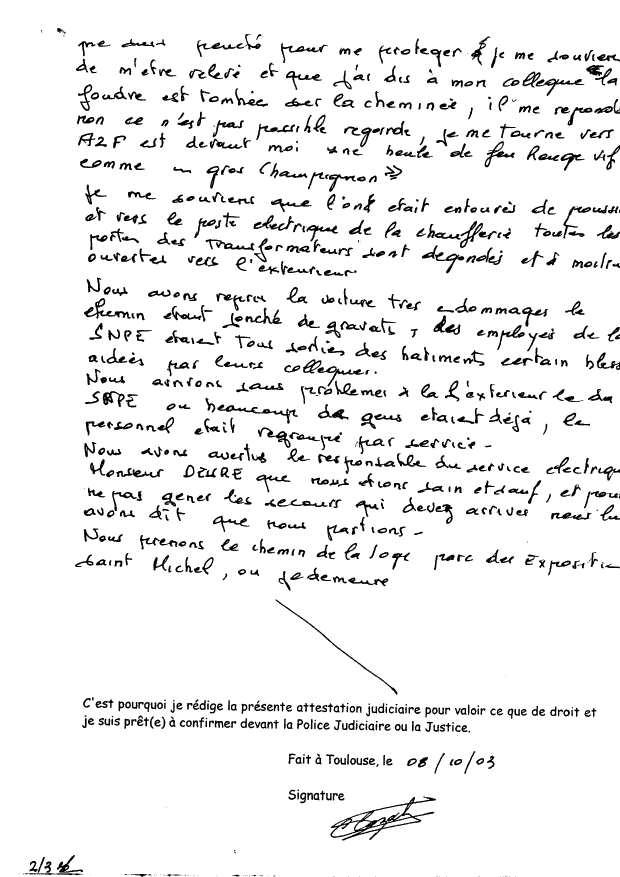 me suis penché pour me proteger & je me souvien
de m'etre relevé et que j'ai dis à mon collegue "la
foudre est tombée sur la cheminée, il me repond
non ce n'est pas possible regarde, je me tourne vers
AZF est devant moi une boule de feu Rouge vif
comme un gros Champignon »
Je me souviens que l'on était entourés de poussi
et vers le poste electrique de la chaufferie toutes les
portes des transformateurs sont degondés et à moitie
ouvertes vers l'exterieur.
Nous avons repris la voiture tres endommages le
chemin étant jonché de gravats, des employes de la
SNPE étaient tous sorties des batiments certain bless
aidées par leurs collegues.
Nous arrivons sans problemes à la l'exterieur le du
SNPE ou beaucoup de gens etaient déjà, le
personnel était regroupé par service -
Nous avons avertis le responsable du service electriqu
Monsieur que nous étions sain et sauf, et pour
ne pas gener les secours qui devez arrives nous lu
avons dit que nous partions -
Nous prenons le chemin de la loge parc des Expositi
Saint Michel, ou je demeure
C'est pourquoi je rédige la présente attestation judiciaire pour valoir ce que de droit et
je suis prêt(e) à confirmer devant la Police Judiciaire ou la Justice.
Fait à Toulouse, le 08/10/03
Signature
2/3